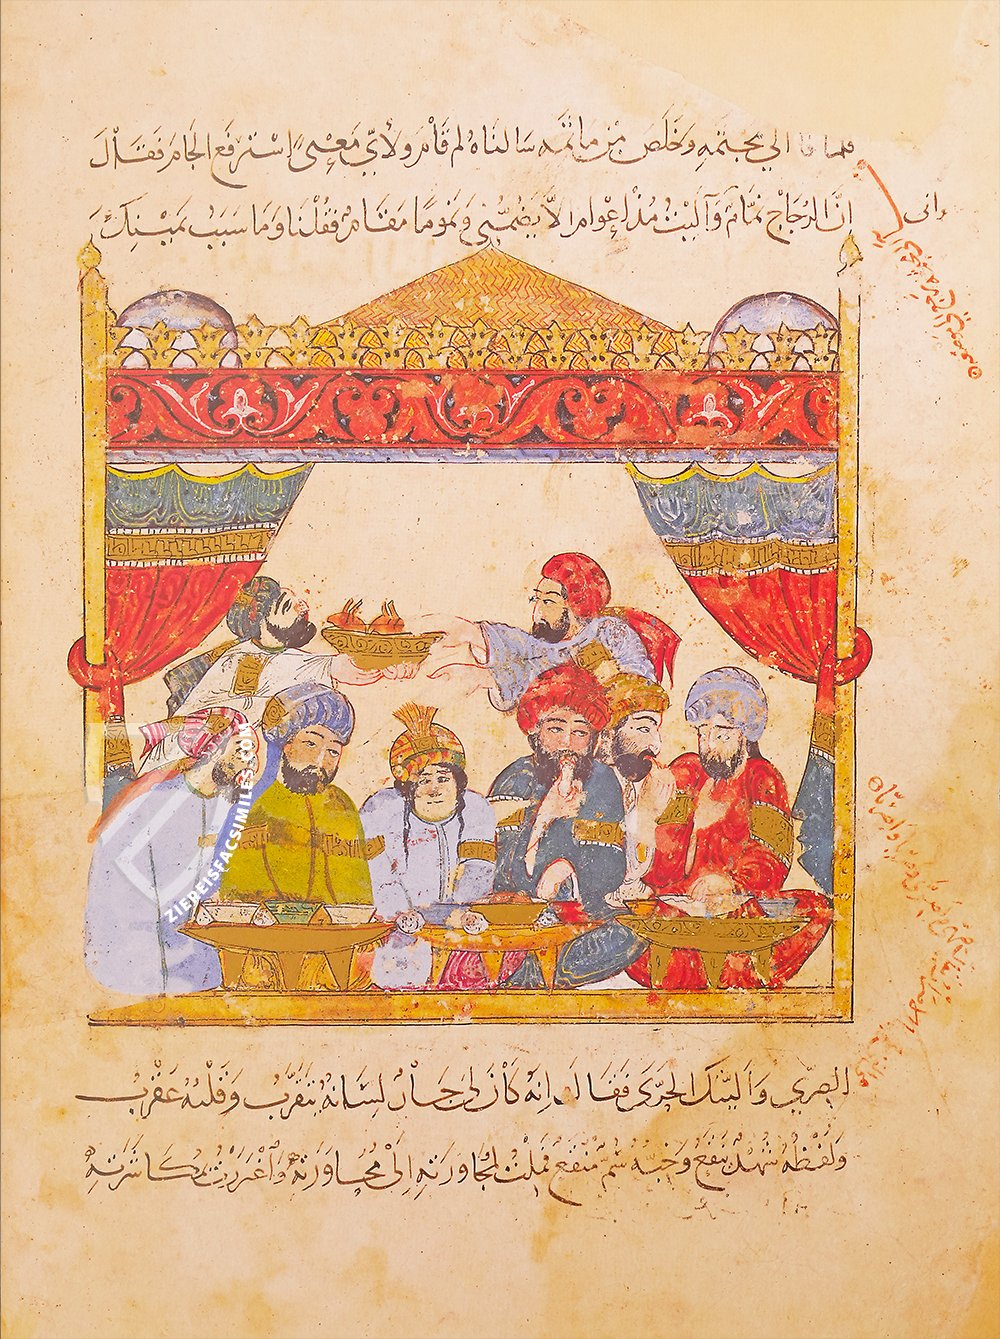 فلما فا الي مجثمه وخلص من ماتمه سالناه لم قام ولاي معنى استرفع الجام فقال
ان الزجاج نمام وآليت مذ اعوام الا يضمني ونموما مقام فقلنا وما سبب يمينك
الصري واليتك الحرى فقال انه كان لي جار لسانه يتقرب وقلبه عقرب
ولفظه شهد ينقع وخبه سم منقع فملت لمجاورته الى محاورته واغتررت بمكاشرته
ZIEREISFACSIMILES.COM